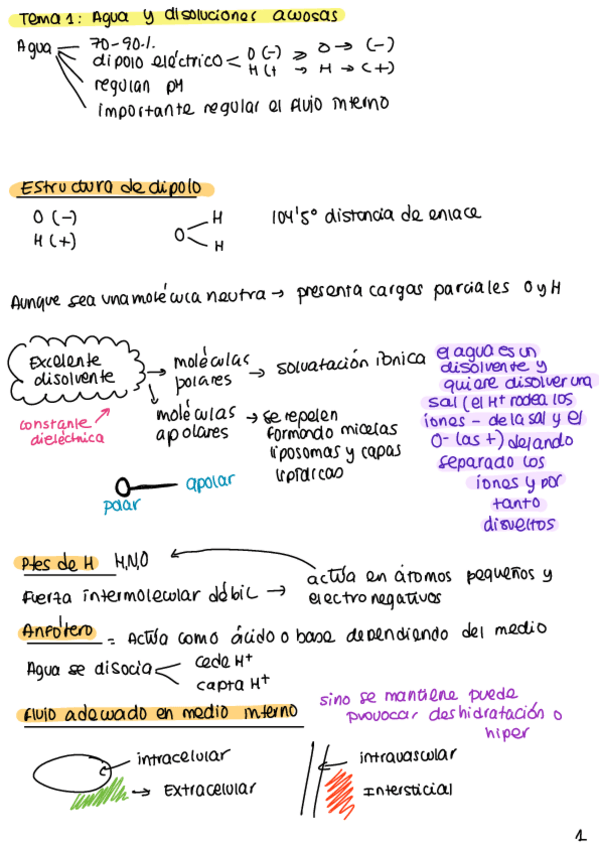 Tema 1: Agua y disoluciones acuosas
Agua
70-90%
dipolo eléctrico < O (-) ⇒ O → (-)
H (+ → H → (+)
regulan pH
importante regular el flujo interno
Estructura de dipolo
O (-)
H (+)
O H H
104'5° distancia de enlace
Aunque sea una molécula neutra → presenta cargas parciales O y H
Excelente disolvente
constante dieléctrica
→ moléculas polares → solvatación iónica
moléculas apolares → se repelen
formando micelas
liposomas y capas
lipídicas
el agua es un
disolvente y
quiere disolver una
sal (el H+ rodea los
iones - de la sal y el
O- las +) dejando
separado los
iones y por
tanto
disueltos
polar
apolar
Ptes de H H,N,O
Fuerza intermolecular débil → actúa en átomos pequeños y
electronegativos
Anfótero = Actúa como ácido o base dependiendo del medio
Agua se disocia
cede H+
capta H+
Flujo adecuado en medio interno
sino se mantiene puede
provocar deshidratación o
hiper
intracelular
→ Extracelular
intravascular
Intersticial
1